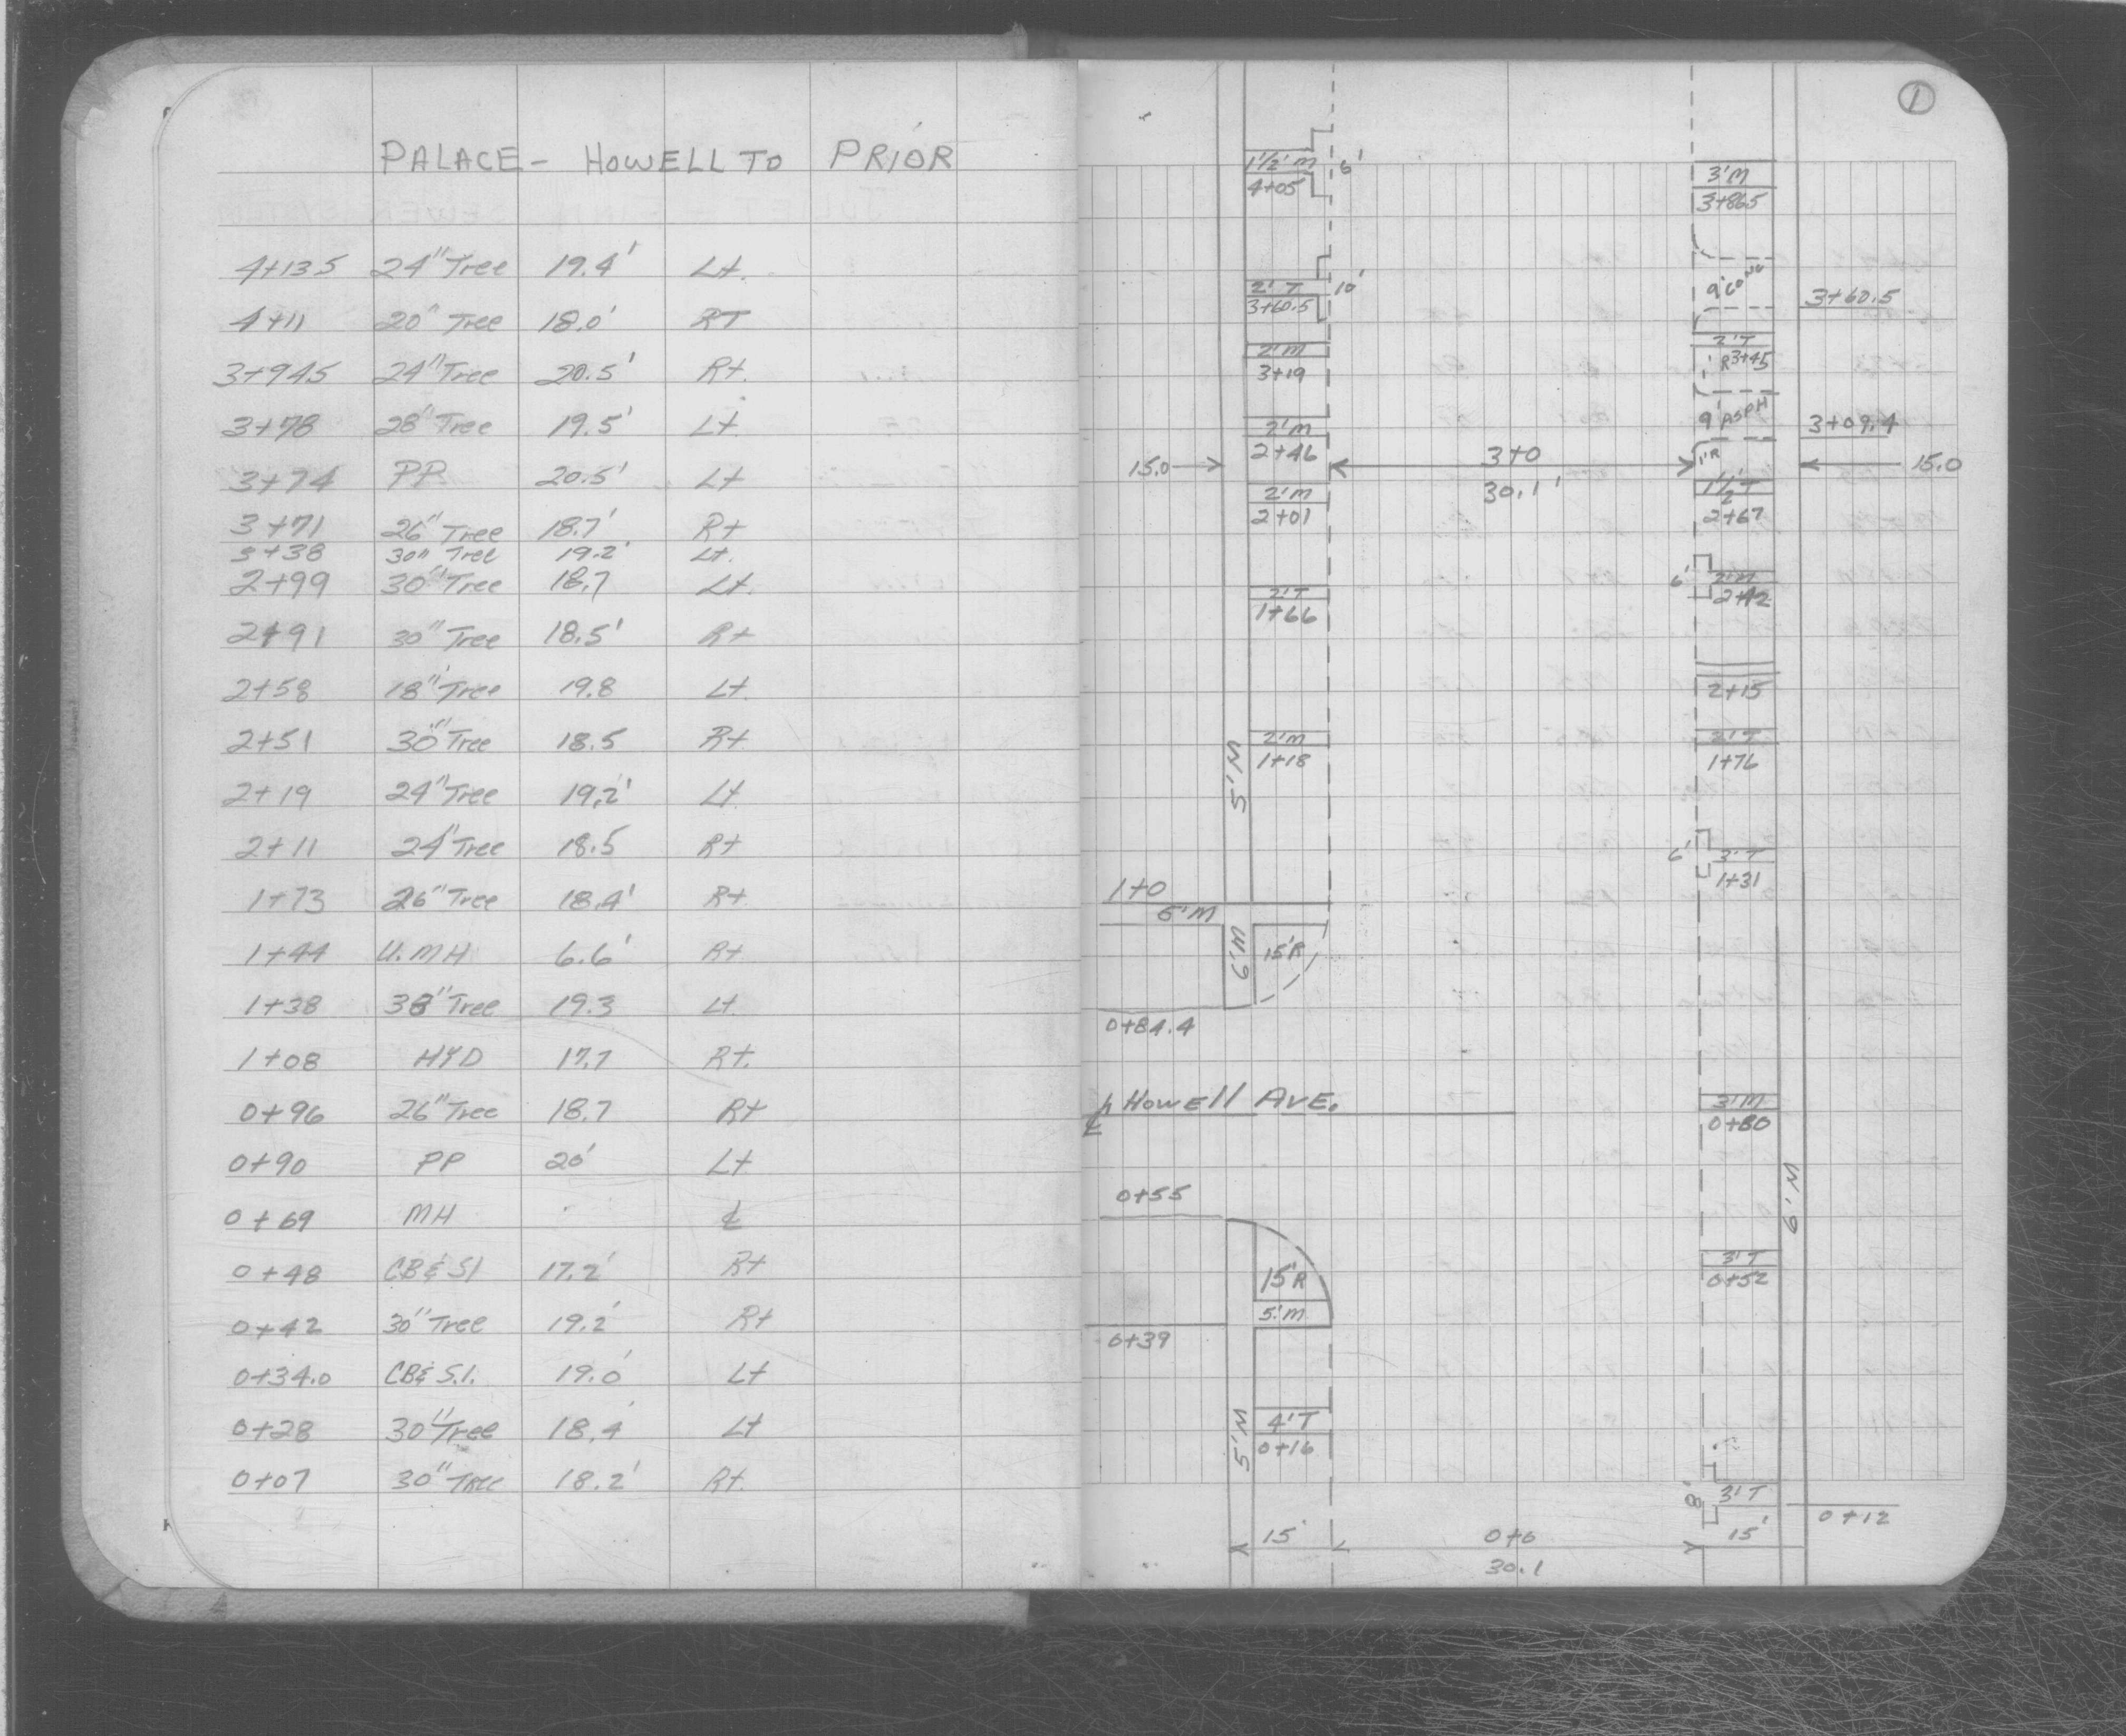 PALACE - HOWELL TO PRIOR
4+13.5 24" Tree 19.4' Lt.
4+11 20" Tree 18.0' RT
3+94.5 24" Tree 20.5' Rt.
3+78 28" Tree 19.5' Lt.
3+74 PP. 20.5' Lt
3+71 26" Tree 18.7' Rt
3+38 30" Tree 19.2' Lt.
2+99 30" Tree 18.7 Lt.
2+91 30" Tree 18.5' Rt
2+58 18" Tree 19.8 Lt
2+51 30" Tree 18.5 Rt
2+19 24" Tree 19.2' Lt
2+11 24" Tree 18.5 Rt
1+73 26" Tree 18.4' Rt
1+44 U.MH 6.6' Rt
1+38 " Tree 19.3 Lt
1+08 HYD 17.7 Rt.
0+96 26" Tree 18.7 Rt
0+90 PP 20' Lt
0+69 MH ℄
0+48 CB & SI 17.2' Rt
0+42 30" Tree 19.2' Rt
0+34.0 CB & S.I. 19.0' Lt
0+28 30" Tree 18.4' Lt
0+07 30" Tree 18.2' Rt.
1
1½' M 6'
4+05
3' M
3+86.5
9' CONC
2' T 10'
3+60.5
3+60.5
2' T
1' R 3+45
2' M
3+19
9' ASPH
3+09.4
2' M
2+46
1' R
15.0
3+0
30.1'
15.0
2' M
2+01
1½' T
2+67
6' 2' M
2+42
2' T
1+66
2+15
2' M
1+18
2' T
1+76
5' M
6' 3' T
1+31
1+0
6' M
6' M
15' R
0+84.4
℄ Howell AVE.
3' M
0+80
0+55
6' M
3' T
0+52
15' R
5' M
0+39
5' M
4' T
0+16
8' 3' T
0+12
15' 0+0 15'
30.1